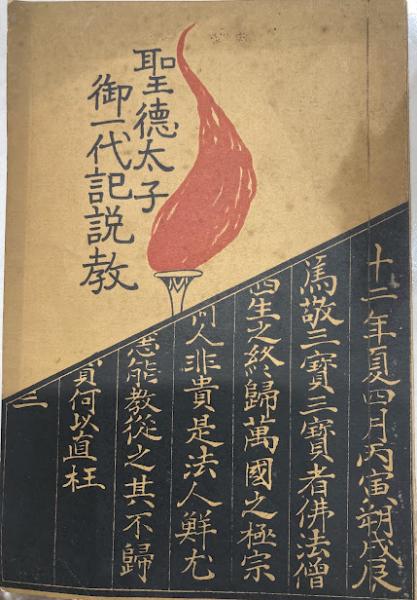 聖德太子
御一代記説教
十二年夏四月丙寅朔戊辰
篤敬三寶三寶者佛法僧
四生之終歸萬國之極宗
何人非貴是法人鮮尤
惡能教從之其不歸
寶何以直枉
三